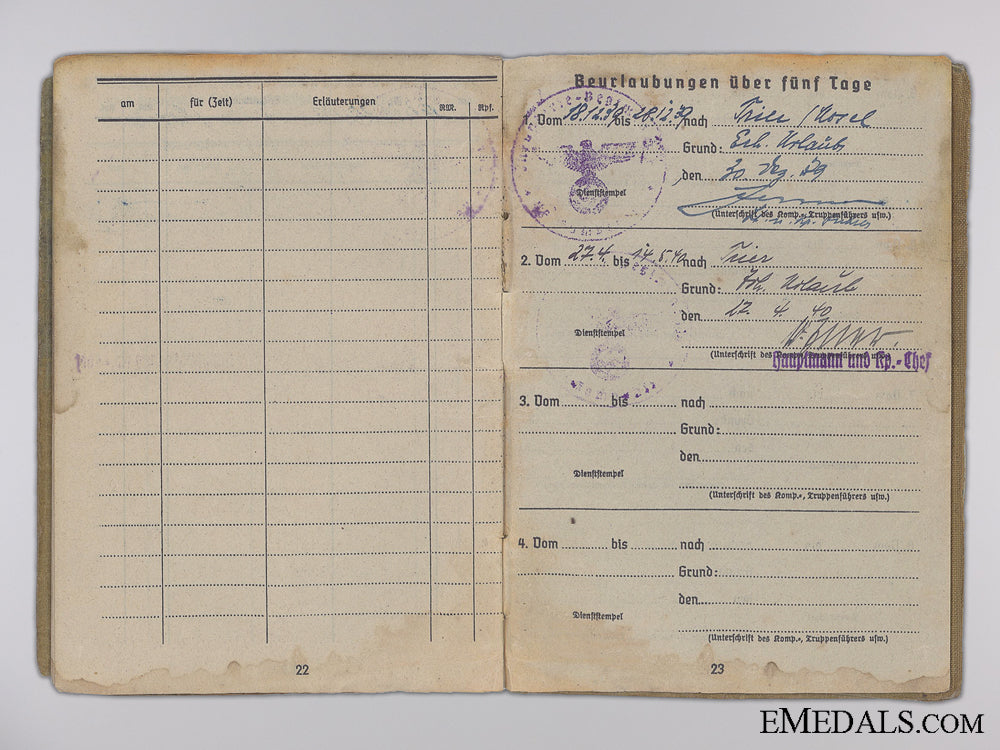 am für (Zeit) Erläuterungen RM. Rpf.
22
Beurlaubungen über fünf Tage
1. Vom 18.12.39 bis 28.12.39 nach Trier / Mosel
Grund: Erh. Urlaub
den 20 Dez. 39
Dienststempel
(Unterschrift des Komp.-, Truppenführers usw.)
2. Vom 27.4. bis 14.5.40 nach Trier
Grund: Erh. Urlaub
den 27. 4. 40
Dienststempel
(Unterschrift des Komp.-, Truppenführers usw.)
Hauptmann und Kp.-Chef
3. Vom bis nach
Grund:
den
Dienststempel
(Unterschrift des Komp.-, Truppenführers usw.)
4. Vom bis nach
Grund:
den
Dienststempel
(Unterschrift des Komp.-, Truppenführers usw.)
23
EMEDALS.COM